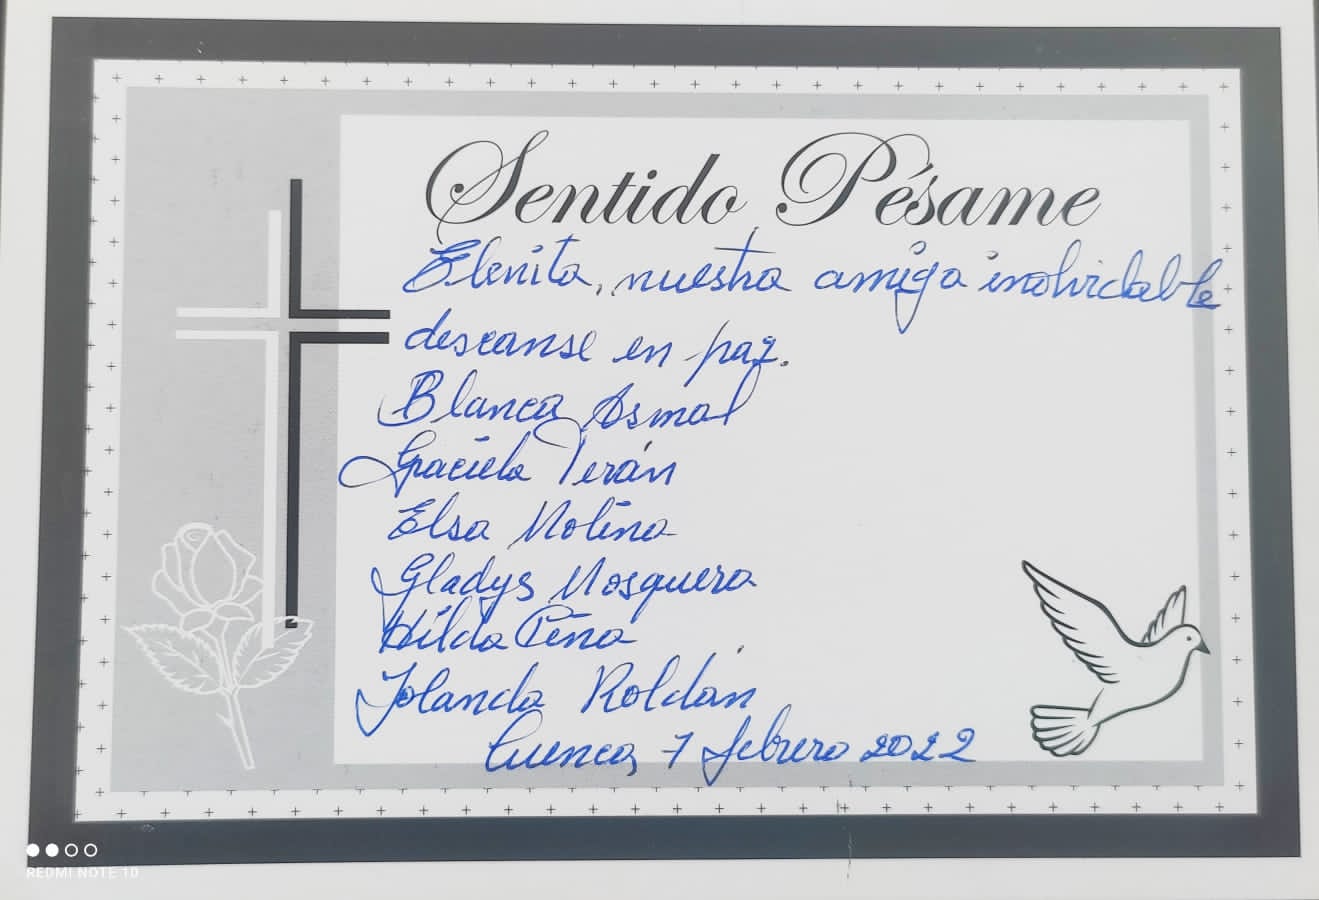 Sentido Pésame
Elenita, nuestra amiga inolvidable
descanse en paz.
Blanca Asmal
Graciela Terán
Elsa Molina
Gladys Mosquera
Hilda Peña
Yolanda Roldán
Cuenca, 7 febrero 2022
REDMI NOTE 10